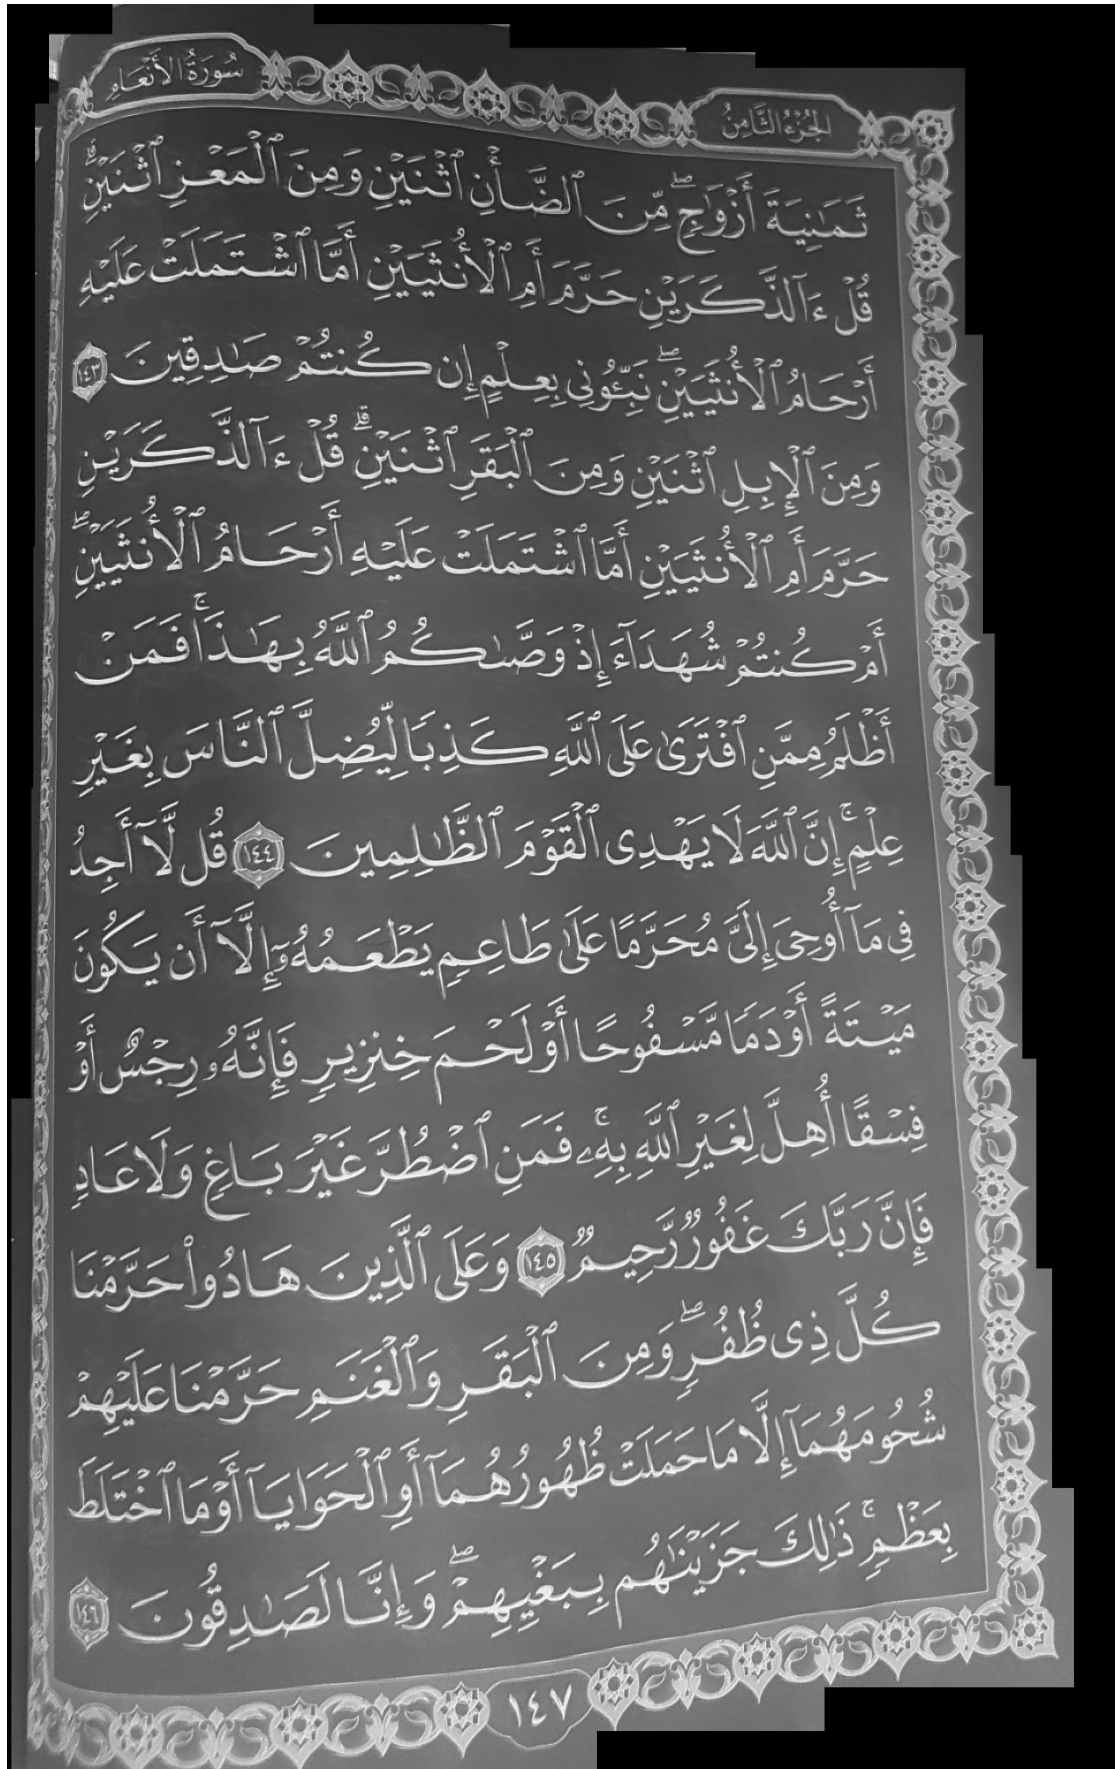 الجزء الثامن
سورة الأنعام
ثَمَٰنِيَةَ أَزْوَٰجٍۖ مِّنَ ٱلضَّأْنِ ٱثْنَيْنِ وَمِنَ ٱلْمَعْزِ ٱثْنَيْنِۗ
قُلْ ءَآلذَّكَرَيْنِ حَرَّمَ أَمِ ٱلْأُنثَيَيْنِ أَمَّا ٱشْتَمَلَتْ عَلَيْهِ
أَرْحَامُ ٱلْأُنثَيَيْنِۖ نَبِّـُٔونِى بِعِلْمٍ إِن كُنتُمْ صَٰدِقِينَ ١٤٣
وَمِنَ ٱلْإِبِلِ ٱثْنَيْنِ وَمِنَ ٱلْبَقَرِ ٱثْنَيْنِۗ قُلْ ءَآلذَّكَرَيْنِ
حَرَّمَ أَمِ ٱلْأُنثَيَيْنِ أَمَّا ٱشْتَمَلَتْ عَلَيْهِ أَرْحَامُ ٱلْأُنثَيَيْنِۖ
أَمْ كُنتُمْ شُهَدَآءَ إِذْ وَصَّىٰكُمُ ٱللَّهُ بِهَٰذَاۚ فَمَنْ
أَظْلَمُ مِمَّنِ ٱفْتَرَىٰ عَلَى ٱللَّهِ كَذِبًا لِّيُضِلَّ ٱلنَّاسَ بِغَيْرِ
عِلْمٍۚ إِنَّ ٱللَّهَ لَا يَهْدِى ٱلْقَوْمَ ٱلظَّٰلِمِينَ ١٤٤ قُل لَّآ أَجِدُ
فِى مَآ أُوحِىَ إِلَىَّ مُحَرَّمًا عَلَىٰ طَاعِمٍ يَطْعَمُهُۥٓ إِلَّآ أَن يَكُونَ
مَيْتَةً أَوْ دَمًا مَّسْفُوحًا أَوْ لَحْمَ خِنزِيرٍ فَإِنَّهُۥ رِجْسٌ أَوْ
فِسْقًا أُهِلَّ لِغَيْرِ ٱللَّهِ بِهِۦۚ فَمَنِ ٱضْطُرَّ غَيْرَ بَاغٍ وَلَا عَادٍ
فَإِنَّ رَبَّكَ غَفُورٌ رَّحِيمٌ ١٤٥ وَعَلَى ٱلَّذِينَ هَادُوا۟ حَرَّمْنَا
كُلَّ ذِى ظُفُرٍۖ وَمِنَ ٱلْبَقَرِ وَٱلْغَنَمِ حَرَّمْنَا عَلَيْهِمْ
شُحُومَهُمَآ إِلَّا مَا حَمَلَتْ ظُهُورُهُمَآ أَوِ ٱلْحَوَايَآ أَوْ مَا ٱخْتَلَطَ
بِعَظْمٍۚ ذَٰلِكَ جَزَيْنَٰهُم بِبَغْيِهِمْۖ وَإِنَّا لَصَٰدِقُونَ ١٤٦
١٤٧